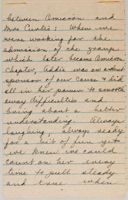 between Omicron and
Mrs Curtis! When we
were working for the
admission of the group
which later became Omicron
Chapter, Addie was an ardent
sponsor of our cause & did
all in her power to smooth
away difficulties and
bring about a better
understanding. Always
laughing, always ready
for a bit of fun yet
we knew we could
count on her every
time to pull steady
and true when